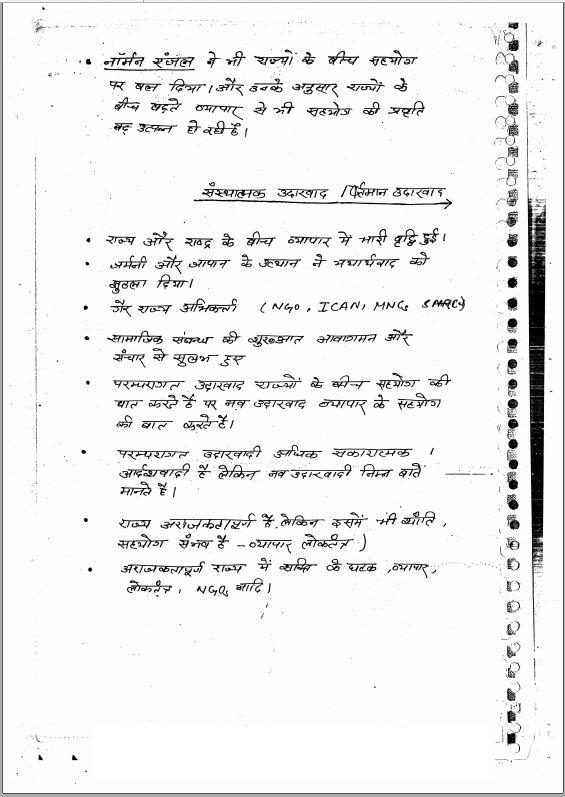 • नॉर्मन एंजल ने भी राज्यों के बीच सहयोग
पर बल दिया। और उनके अनुसार राज्यों के
बीच बढ़ते व्यापार से भी सहयोग की प्रवृति
उत्पन्न हो रही है।
संस्थात्मक उदारवाद / वर्तमान उदारवाद
• राज्य और राष्ट्र के बीच व्यापार में भारी वृद्धि हुई।
• जर्मनी और जापान के उत्थान ने यथार्थवाद को
झुठला दिया।
• गैर राज्य अभिकर्त्ता (NGO, ICAN, MNCs
• सामाजिक संबन्धों की शुरुआत आवागमन और
संचार से सुलभ हुए
• परम्परागत उदारवाद राज्यों के बीच सहयोग की
बात करते हैं पर नव उदारवाद व्यापार के सहयोग
की बात करते हैं।
• परम्परागत उदारवादी अधिक सकारात्मक ।
आर्दशवादी है लेकिन नव उदारवादी निम्न बातें
मानते है।
• राज्य अराजकतापूर्ण है. लेकिन इसमें भी शांति,
सहयोग संभव है - व्यापार लोकतंत्र )
• अराजकतापूर्ण राज्य में शान्ति के घटक , व्यापार,
लोकतंत्र, NGOs आदि।